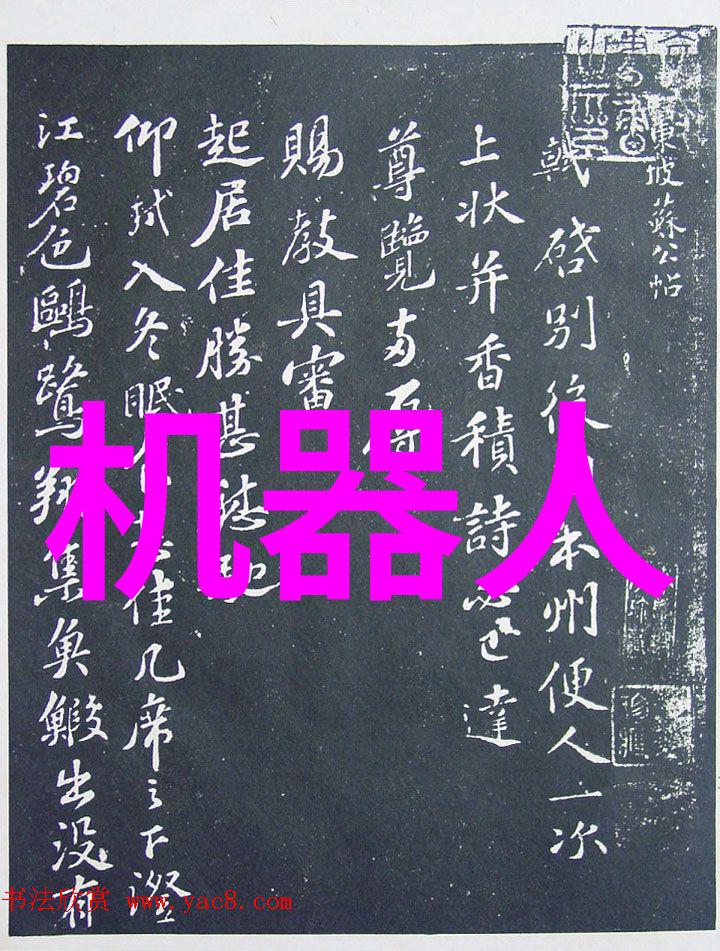 東坡蘇公帖
軾啓別後本州便人一次
上狀并香積詩必已達
尊覽辱
賜教具審
起居佳勝甚慰馳
仰軾入冬眠食甚佳几席之下澄
江碧色鷗鷺翔集魚鰕出没有
机器人
书法欣赏 www.yac8.com